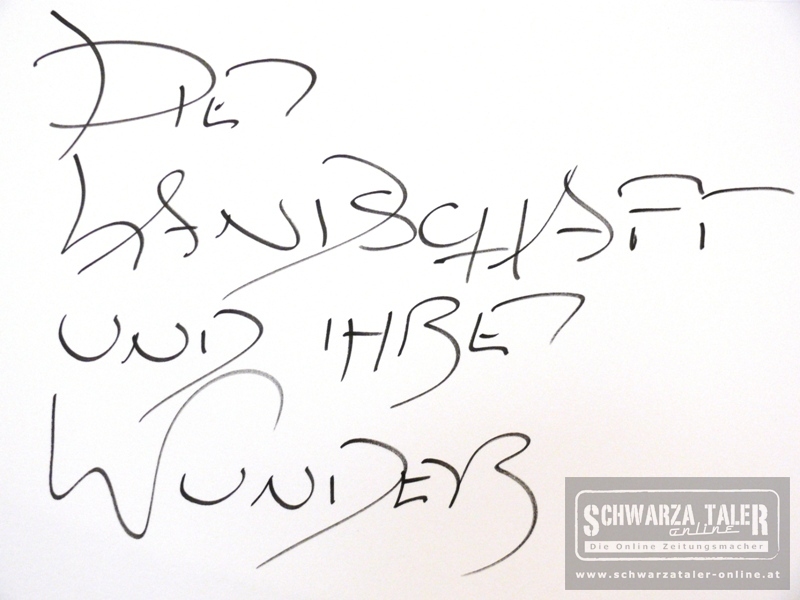 DIE
LANDSCHAFT
UND IHRE
WUNDER
SCHWARZA TALER
online
Die Online Zeitungsmacher
www.schwarzataler-online.at